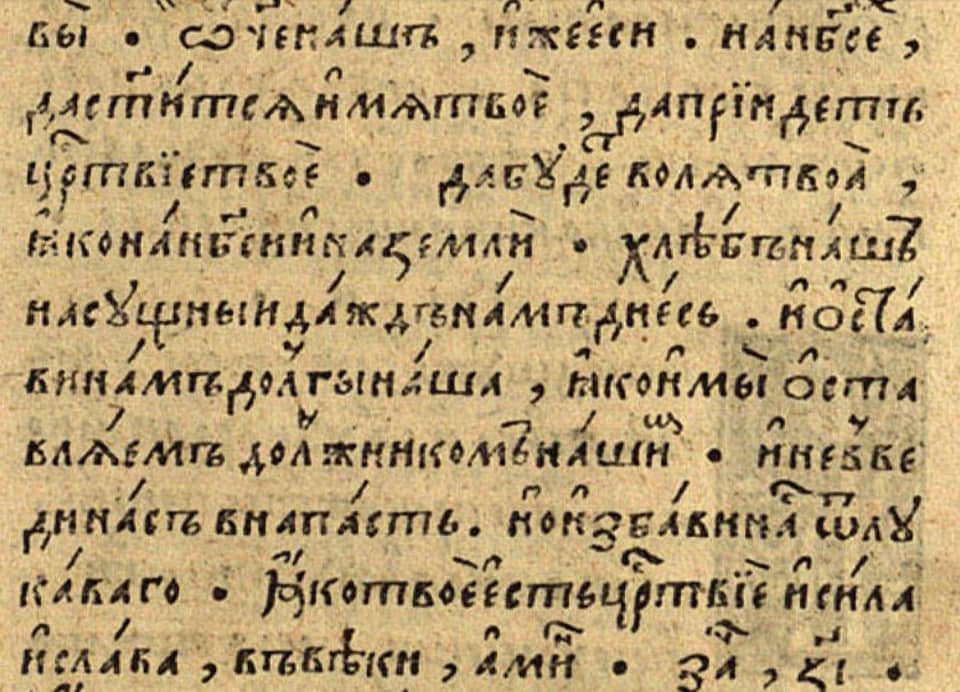 вы̀ . ѿч҃е на́шъ , и҆́же е҆сѝ . на́ нб҃сѐ ,
да ст҃и́тся и҆́мя твоѐ , да прїи́детъ
цр҃твїе твоѐ . да бꙋ́де во́ля твоѧ̀ ,
ꙗ҆́ко на́ нб҃си и҆ на землѝ . хлѣ́бъ на́шъ
насꙋ́щныи да́ждь на́мъ дне́сь . и҆ ѻ҆ста́
ви на́мъ до́лгы на́ша , ꙗ҆́ко и҆ мы̀ ѻ҆ста
влѧ́емъ до́лжникомъ на́ши . и҆ не в̾ве
ди на́съ в напа́сть . но̀ и҆зба́ви на ѿ лꙋ
ка́ваго . Ꙗ҆́ко твоѐ е҆́сть цр҃твїе и҆ си́ла
и҆ сла́ва , въ вѣ́ки , а҆ми́н . за , з҃і .